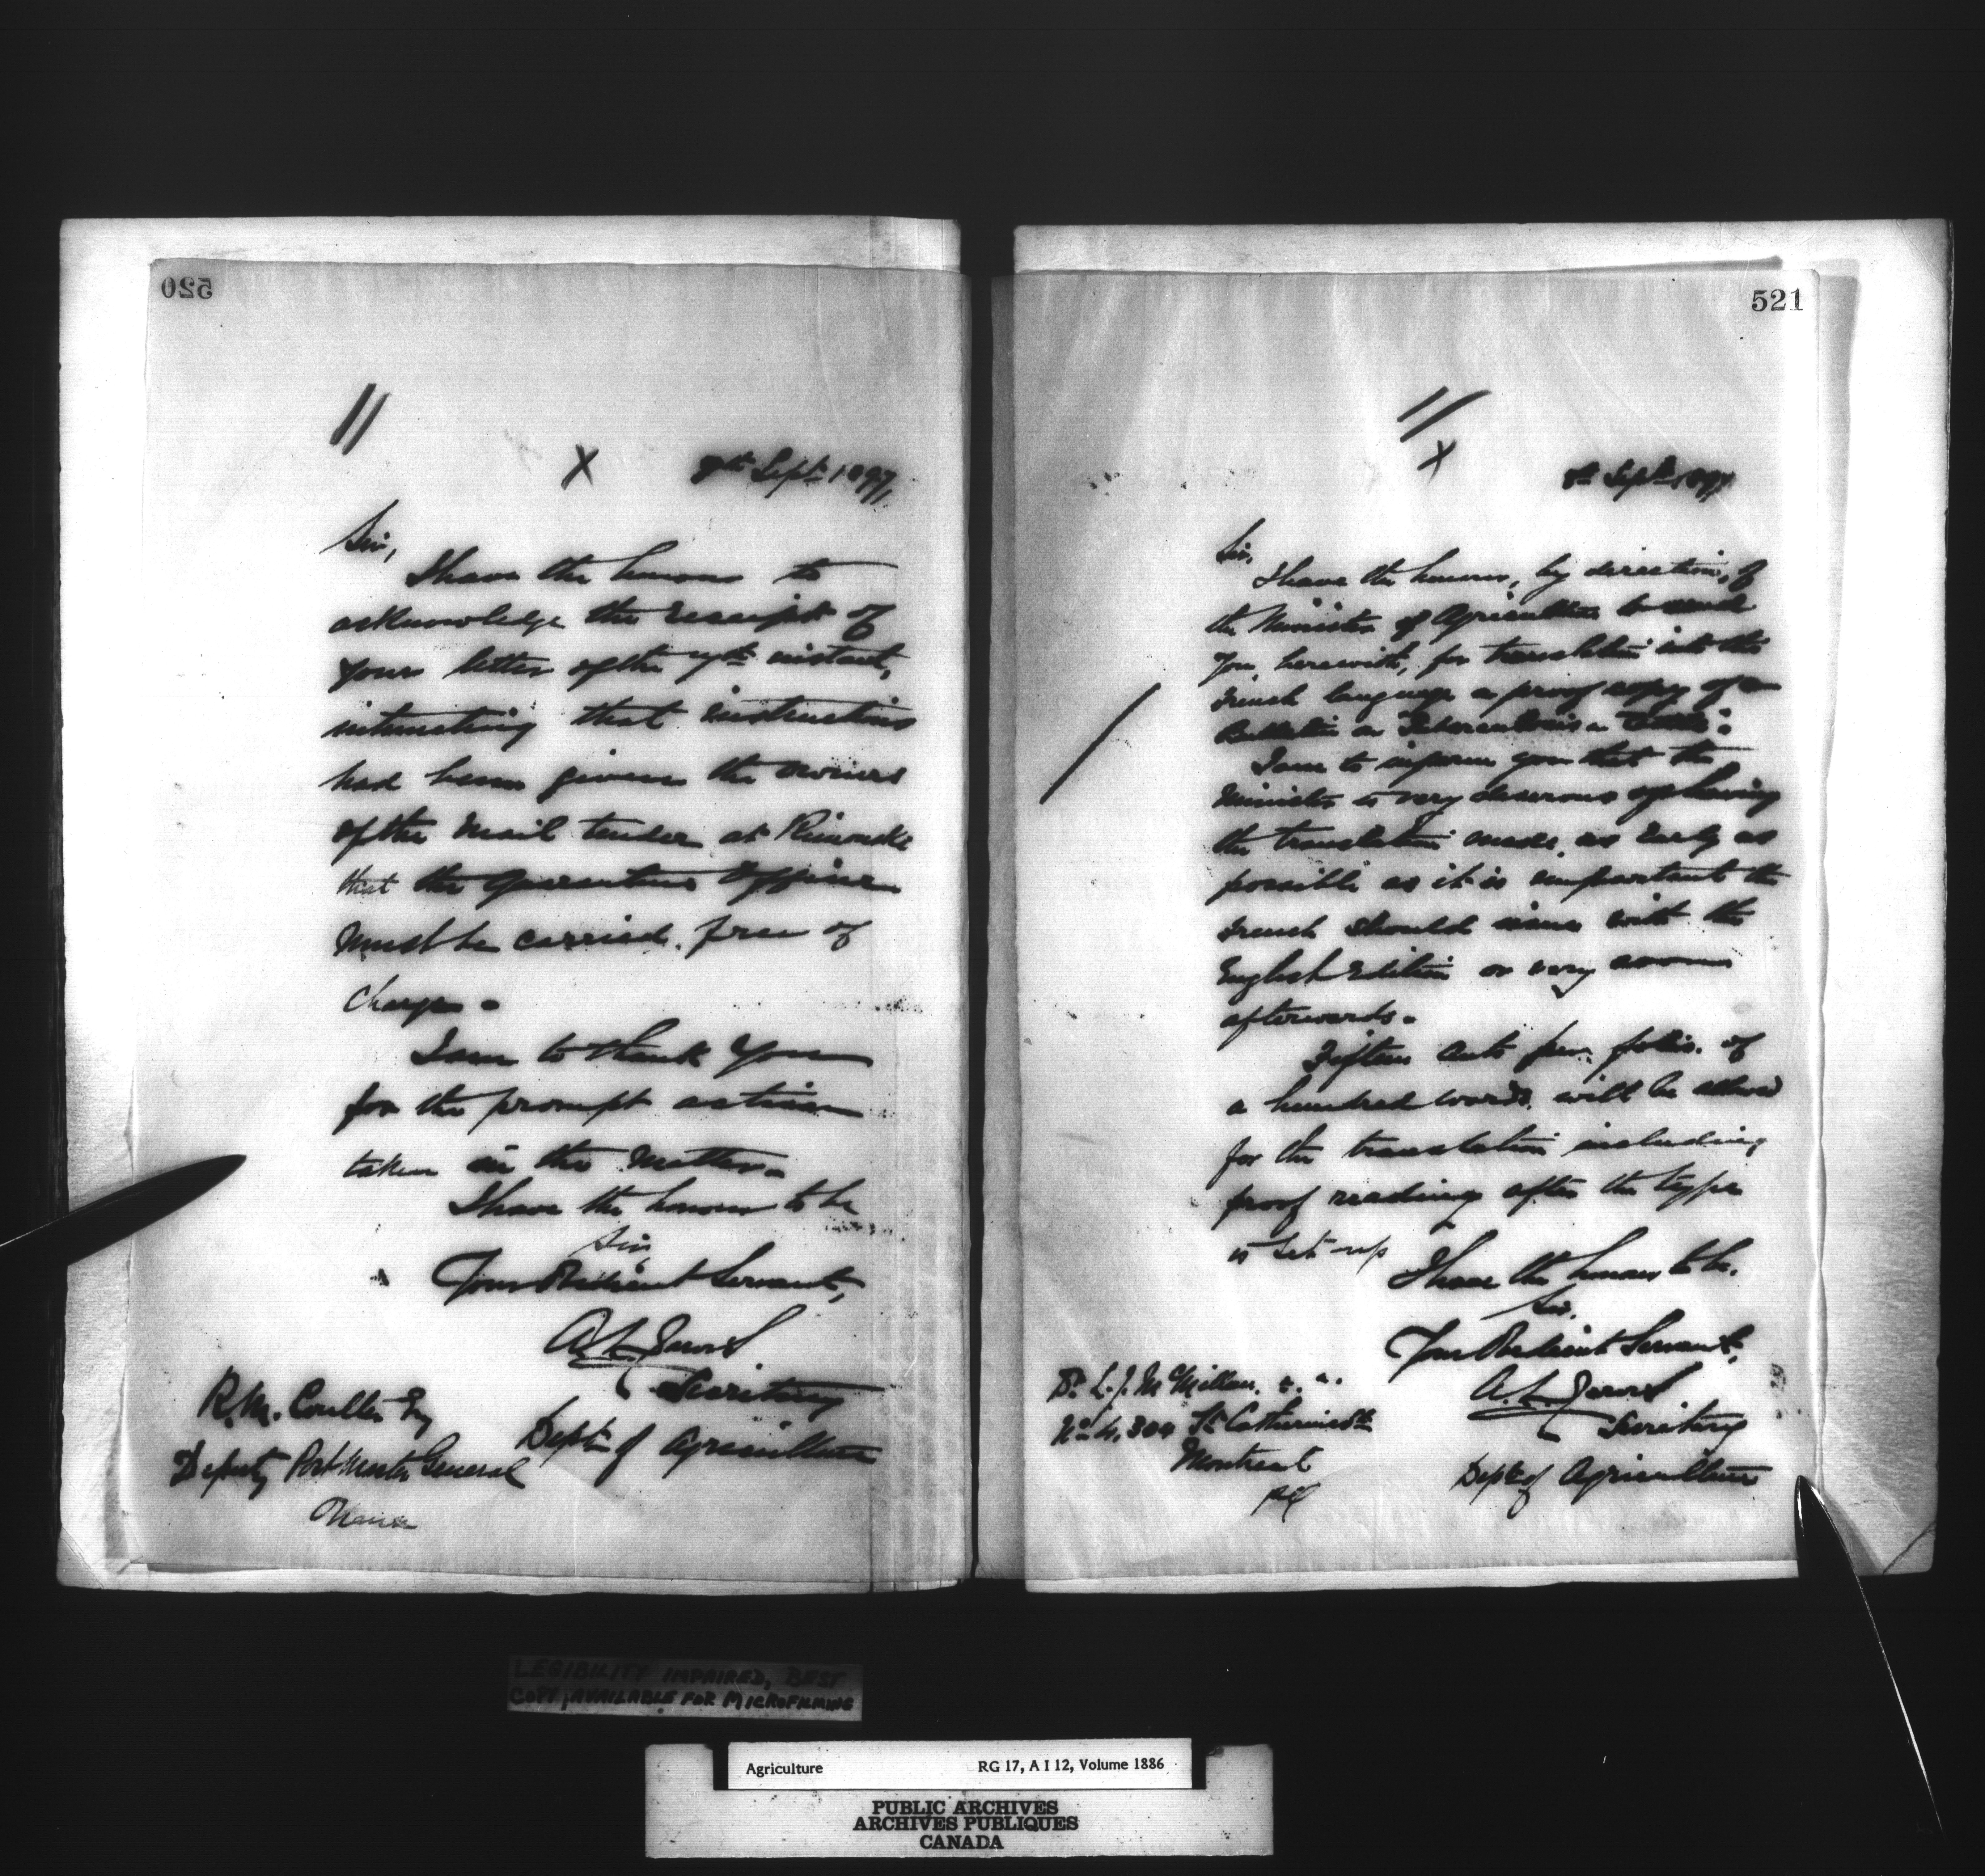 520
//
X
8th Sept. 1897,
Sir,
I have the honour to
acknowledge the receipt of
your letter of the 7th instant,
intimating that instructions
had been given the owners
of the Mail tender at Rimouski
that the Quarantine Officer
must be carried free of
charge.
I am to thank you
for the prompt action
taken in the matter.
I have the honour to be
Sir,
Your Obedient Servant,
A. L. Jarvis
Secretary
Dept. of Agriculture
R. M. Coulter Esq
Deputy Post Master General
Ottawa
521
//
X
8th Sept 1897
Sir,
I have the honour, by direction, of
the Minister of Agriculture to send
you herewith, for translation into the
French language a proof copy of a
Bulletin on Tuberculosis
I am to inform you that the
Minister is very desirous of having
the translation made as early as
possible as it is important the
French should issue with the
English Edition or very soon
afterwards.
Fifteen cents per folio of
a hundred words will be allowed
for the translation including
proof reading after the type
is set up
I have the honour to be,
Sir,
Your Obedient Servant,
A. L. Jarvis
Secretary
Dept of Agriculture
Dr. L. J. McMillan
St Catherine St
Montreal
PQ
LEGIBILITY IMPAIRED, BEST
COPY AVAILABLE FOR MICROFILMING
Agriculture RG 17, A I 12, Volume 1886
PUBLIC ARCHIVES
ARCHIVES PUBLIQUES
CANADA